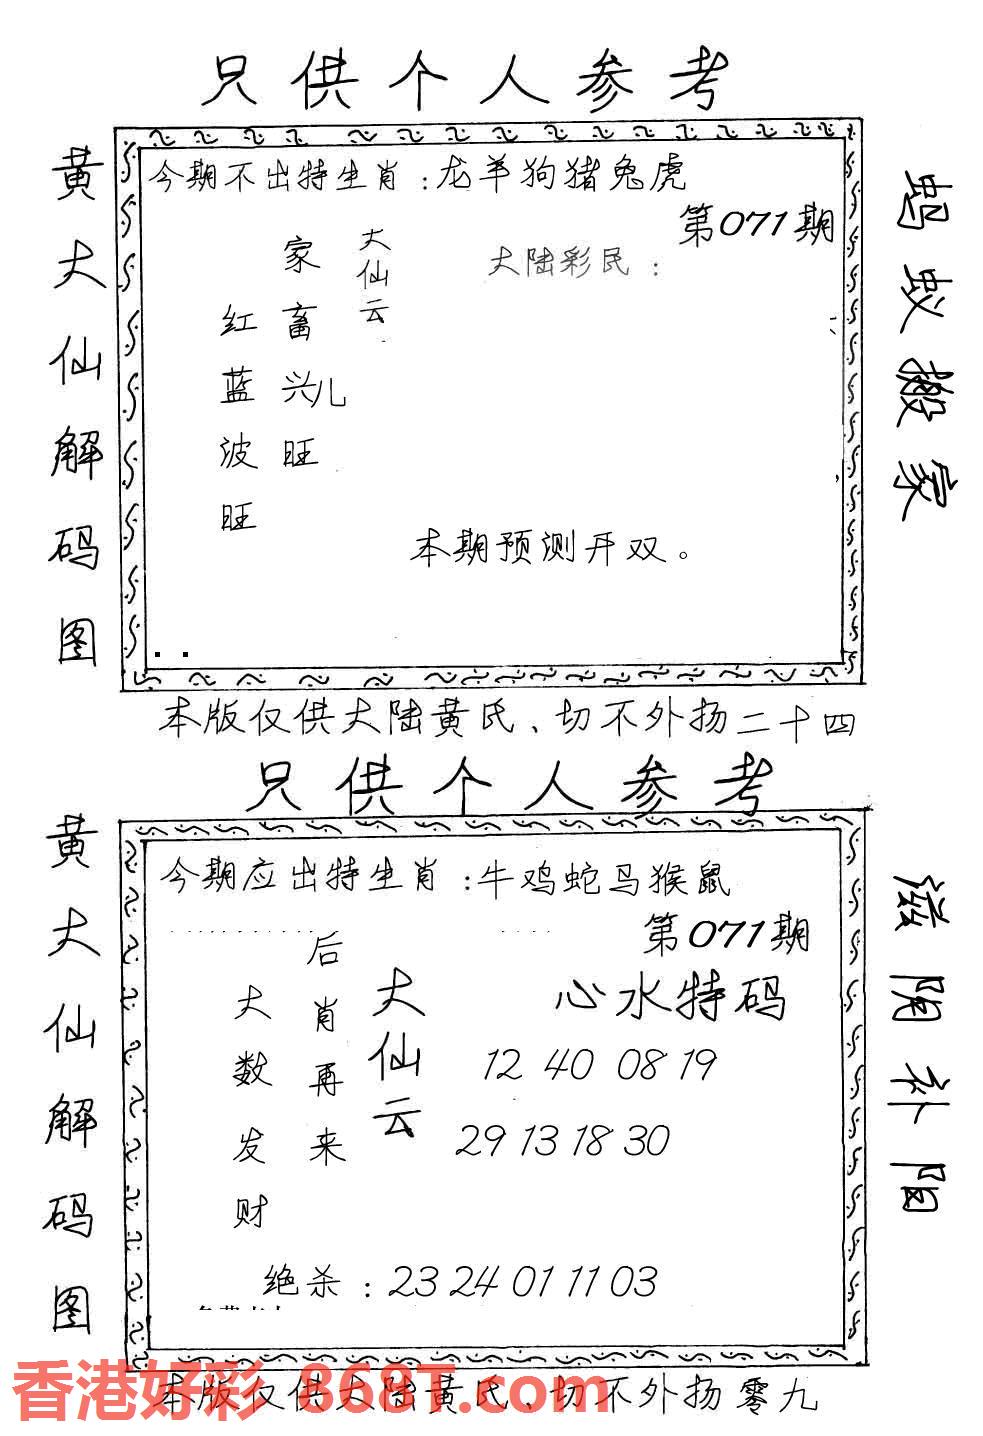 只供个人参考
黄大仙解码图
今期不出特生肖:龙羊狗猪兔虎
第071期
大仙云
家畜兴儿旺
红蓝波旺
大陆彩民:
本期预测开双。
蚂蚁搬家
本版仅供大陆黄氏、切不外扬二十四
只供个人参考
黄大仙解码图
今期应出特生肖:牛鸡蛇马猴鼠
第071期
大仙云
后肖再来
大数发财
心水特码
12 40 08 19
29 13 18 30
绝杀:23 24 01 11 03
滋阴补阳
香港好彩 868T.com
本版仅供大陆黄氏、切不外扬零九